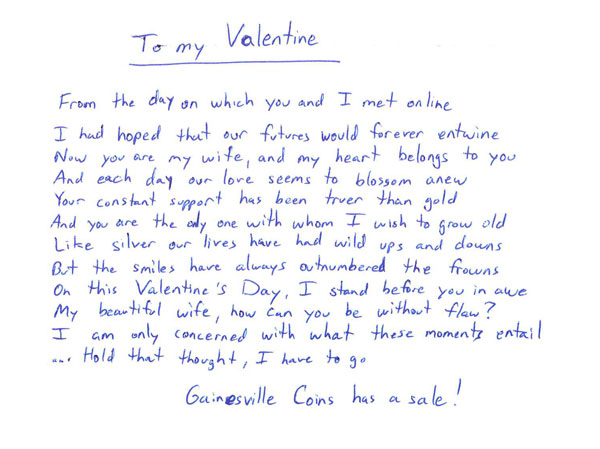 To my Valentine
From the day on which you and I met online
I had hoped that our futures would forever entwine
Now you are my wife, and my heart belongs to you
And each day our love seems to blossom anew
Your constant support has been truer than gold
And you are the only one with whom I wish to grow old
Like silver our lives have had wild ups and downs
But the smiles have always outnumbered the frowns
On this Valentine's Day, I stand before you in awe
My beautiful wife, how can you be without flaw?
I am only concerned with what these moments entail
... Hold that thought, I have to go
Gainesville Coins has a sale!